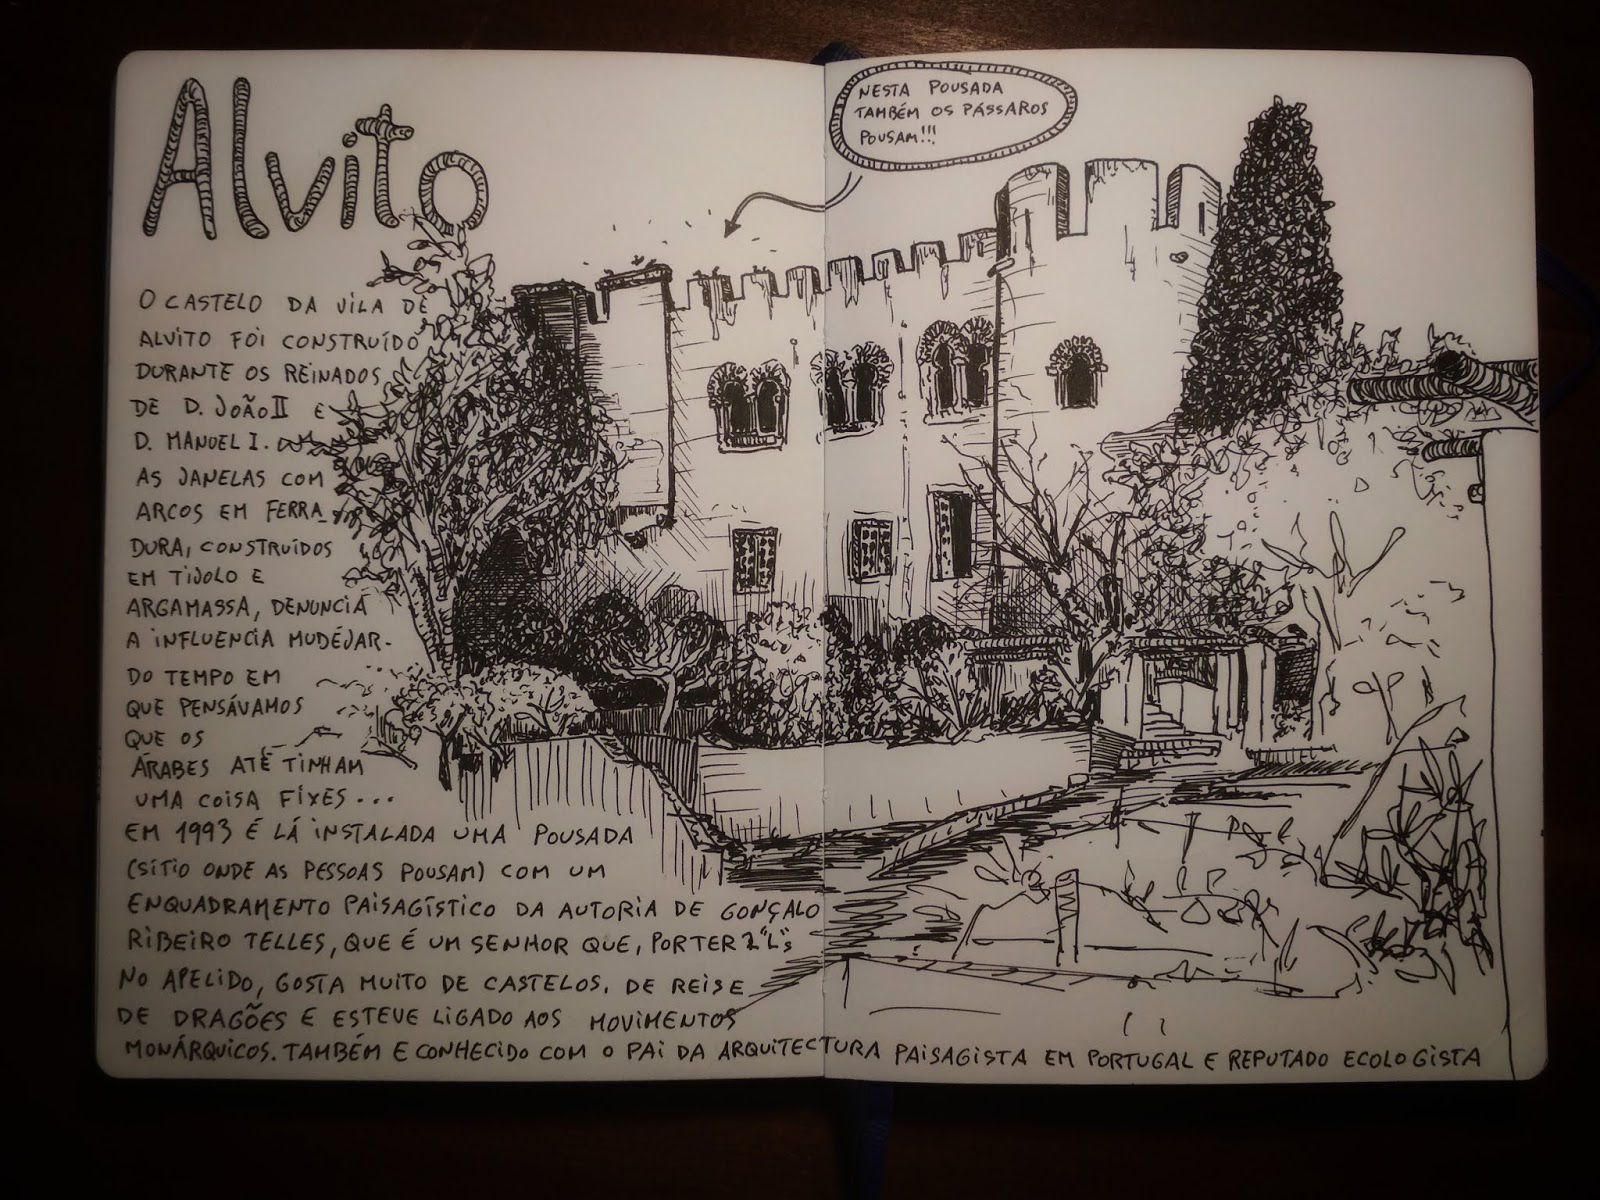 Alvito
NESTA POUSADA
TAMBÉM OS PÁSSAROS
POUSAM!!!
O CASTELO DA VILA DE
ALVITO FOI CONSTRUÍDO
DURANTE OS REINADOS
DE D. JOÃO II E
D. MANUEL I.
AS JANELAS COM
ARCOS EM FERRA_
DURA, CONSTRUÍDOS
EM TIJOLO E
ARGAMASSA, DENUNCIA
A INFLUENCIA MUDÉJAR.
DO TEMPO EM
QUE PENSÁVAMOS
QUE OS
ÁRABES ATÉ TINHAM
UMA COISA FIXES...
EM 1993 É LÁ INSTALADA UMA POUSADA
(SÍTIO ONDE AS PESSOAS POUSAM) COM UM
ENQUADRAMENTO PAISAGÍSTICO DA AUTORIA DE GONÇALO
RIBEIRO TELLES, QUE É UM SENHOR QUE, POR TER 2 "L"s
NO APELIDO, GOSTA MUITO DE CASTELOS, DE REIS E
DE DRAGÕES E ESTEVE LIGADO AOS MOVIMENTOS
MONÁRQUICOS. TAMBÉM E CONHECIDO COM O PAI DA ARQUITECTURA PAISAGISTA EM PORTUGAL E REPUTADO ECOLOGISTA